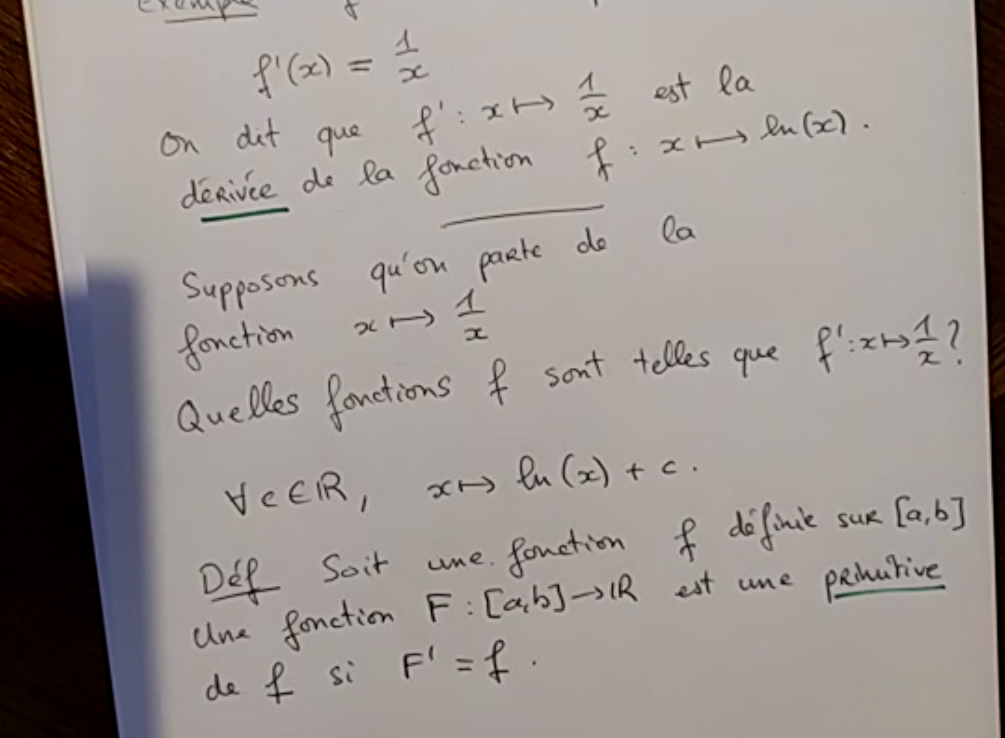 exemple f
f'(x) = 1/x
On dit que f' : x ↦ 1/x est la
dérivée de la fonction f : x ↦ ln(x).
Supposons qu'on parte de la
fonction x ↦ 1/x
Quelles fonctions f sont telles que f' : x ↦ 1/x ?
∀ c ∈ ℝ, x ↦ ln(x) + c.
Déf Soit une fonction f définie sur [a,b]
Une fonction F : [a,b] → ℝ est une primitive
de f si F' = f.